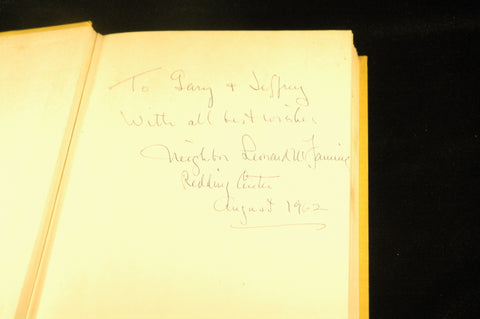 To Gary & Jeffrey
With all best wishes
Neighbor Leonard M. Fanning
Redding Center
August 1962